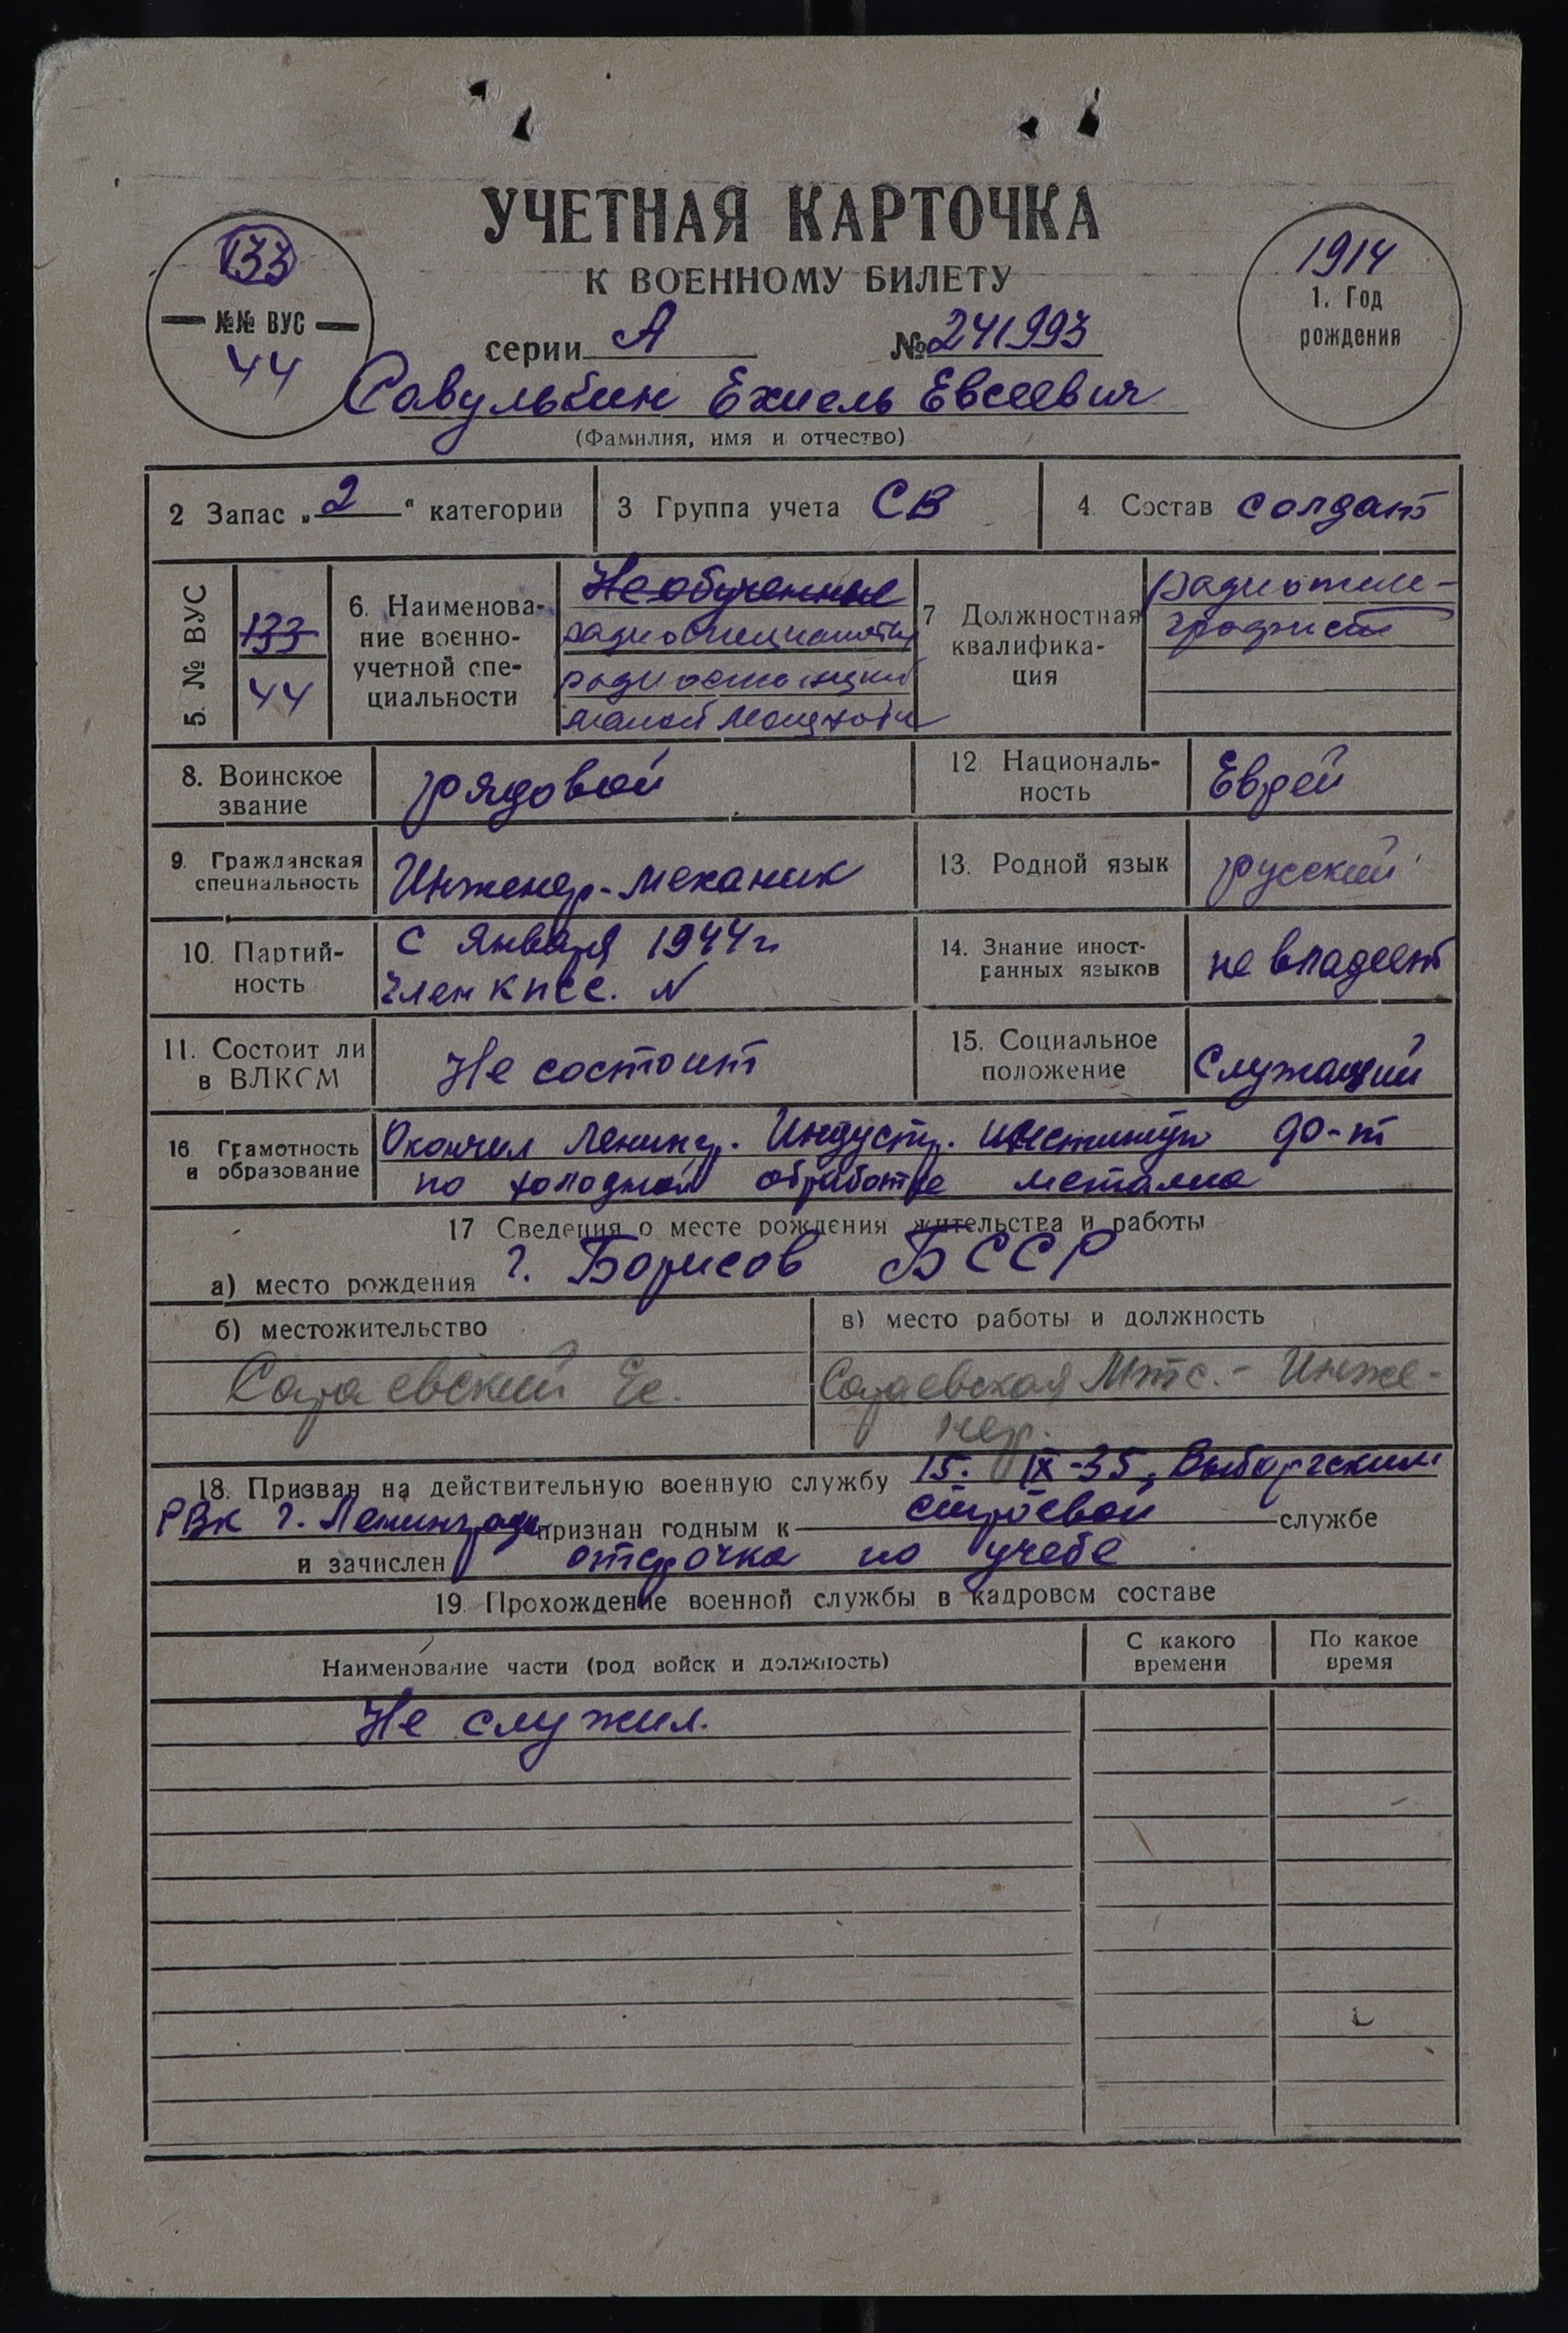 УЧЕТНАЯ КАРТОЧКА
К ВОЕННОМУ БИЛЕТУ
133
№№ ВУС
44
1914
1. Год
рождения
серии А №241993
Савулькин Ехиель Евсеевич
(Фамилия, имя и отчество)
2 Запас „2“ категории
3 Группа учета СВ
4. Состав солдат
5. № ВУС
133
44
6. Наименова-
ние военно-
учетной спе-
циальности
Необученные
радиоспециалисты
радиостанций
малой мощности
7 Должностная
квалифика-
ция
радиотеле-
графист
8. Воинское
звание
рядовой
12 Националь-
ность
Еврей
9. Гражданская
специальность
Инженер-механик
13. Родной язык
русский
10. Партий-
ность
С Января 1944 г
член КПСС. N
14. Знание иност-
ранных языков
не владеет
11. Состоит ли
в ВЛКСМ
Не состоит
15. Социальное
положение
Служащий
16 Грамотность
и образование
Окончил Ленингр. Индустр. институт
по холодной обработке металла
17 Сведения о месте рождения жительства и работы
а) место рождения г. Борисов БССР
б) местожительство
в) место работы и должность
Сараевский
Сараевская Мтс. - Инже-
нер.
18. Призван на действительную военную службу 15. IX-35, Выборгским
РВК г. Ленинграда признан годным к строевой службе
и зачислен отсрочка по учебе
19. Прохождение военной службы в кадровом составе
Наименование части (род войск и должность)
С какого
времени
По какое
время
Не служил.